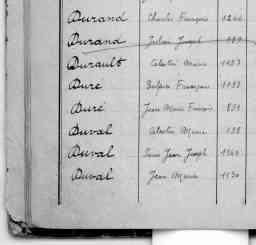 Durand Charles François 1244
Durand Julien Joseph
Durault Célestin Marie 1153
Duré François 1193
Duré Jean Marie François 831
Duval Célestin 138
Duval Jean Joseph
Duval Jean 1130